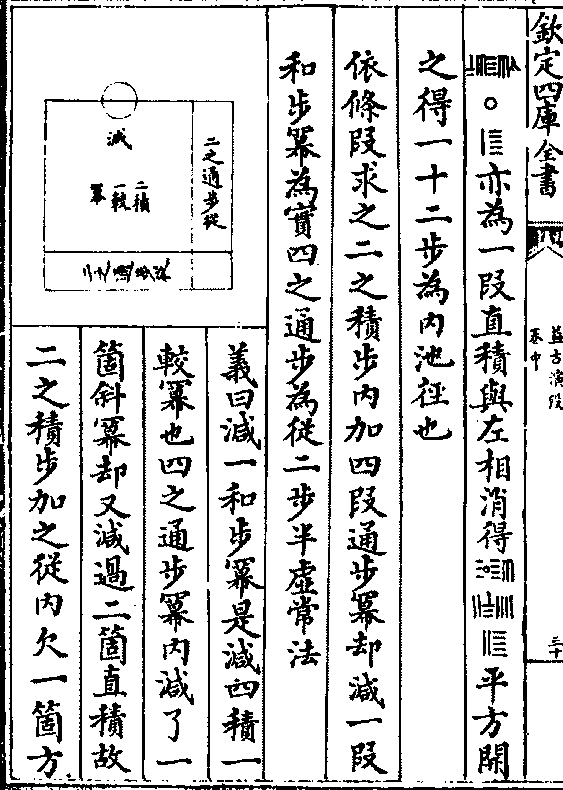 欽定四庫全書
益古演段
卷中
三十
亦為一段直積與左相消得
平方開
之得一十二步為内池徑也
依條段求之二之積步内加四段通步冪却減一段
和步冪為實四之通步為從二步半虛常法
減
二積
一較
冪
二之通步從
義曰減一和步冪是減四積一
較冪也四之通步冪内減了一
箇斜冪却又減過二箇直積故
二之積步加之從内欠一箇方